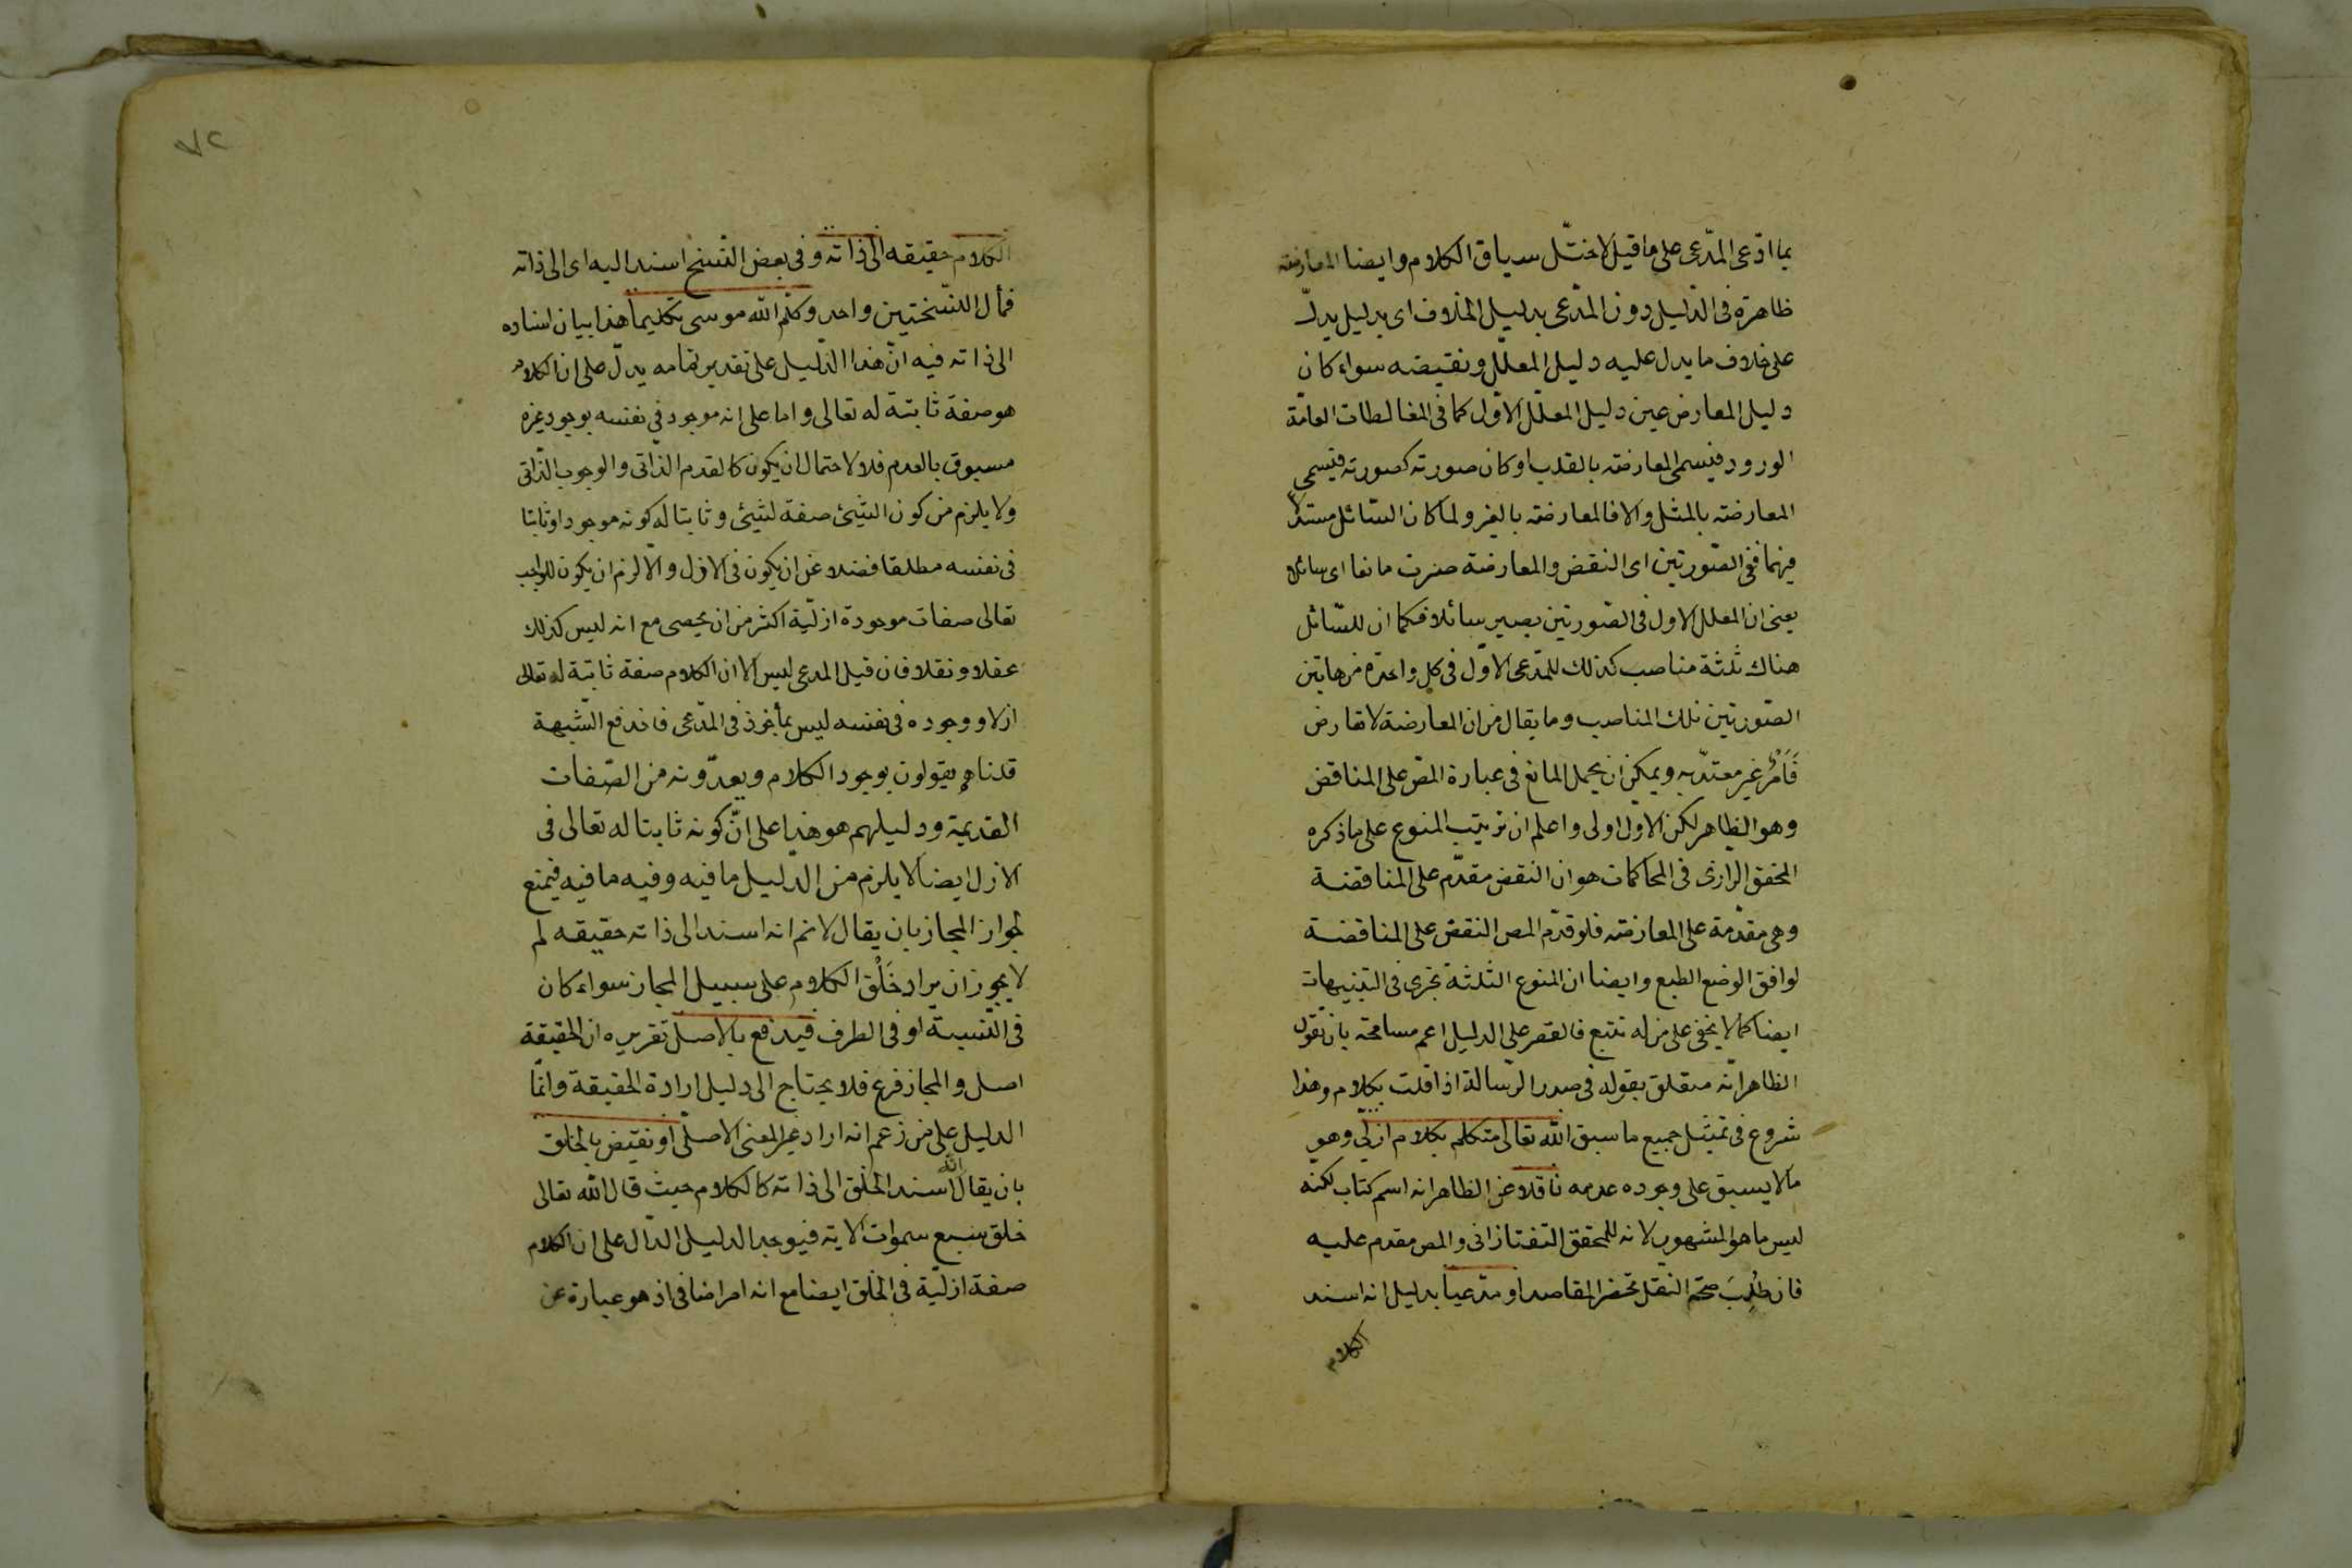 بما ادّعى المدّعى على ما قيل لاختلّ سياق الكلام وايضا المعارضة
ظاهرة فى الدّليل دون المدّعى بدليل الخلاف اى بدليل يدلّ
على خلاف ما يدل عليه دليل المعلّل ونقيضه سواء كان
دليل المعارض عين دليل المعلّل الاوّل كما فى المغالطات العامّة
الورود فيسمى المعارضة بالقلب او كان صورته كصورته فيسمى
المعارضة بالمثل والا فالمعارضة بالغير ولما كان السّائل مستدلا
فيهما ففى الصّورتين اى النقض والمعارضة صرت مانعا اى سائلا
يعنى ان المعلل الاول فى الصّورتين يصير سائلا فكما ان للسّائل
هناك ثلثة مناصب كذلك للمدّعى الاوّل فى كل واحدة من هاتين
الصّورتين تلك المناصب وما يقال من ان المعارضة لا تعارض
فَاَمْرٌ غير معتدّ به ويمكن ان يحمل المانع فى عبارة المص على المناقض
وهو الظاهر لكن الاول اولى واعلم ان ترتيب المنوع على ما ذكره
المحقق الرازى فى المحاكمات هو ان النقض مقدّم على المناقضة
وهى مقدّمة على المعارضة فلو قدّم المص النقض على المناقضة
لوافق الوضع الطبع وايضا ان المنوع الثلثة تجرى فى التنبيهات
ايضا كما لا يخفى على من له تتبع فالقصر على الدليل اعم مسامحة بان تقول
الظاهر انّه متعلق بقوله فى صدر الرّسالة اذا قلت بكلام وهذا
شروع فى تمثيل جميع ما سبق الله تعالى متكلم بكلام ازلّى وهو
ما لا يسبق على وجوده عدمه ناقلا عن الظاهر انه اسم كتاب لكنه
ليس ما هو المشهور لانه للمحقق التفتازانى والمص مقدم عليه
فان طُلِبَ صحّة النقل تحضر المقاصد او مدّعيا بدليل انه اسند
الكلام
٧٢
الكلام حقيقه الى ذاته وفى بعض النّسخ اسند اليه اى الى ذاته
فمأل النّسختين واحد وكلّم الله موسى تكليما هذا بيان اسناده
الى ذاته فيه انّ هذا الدّليل على تقدير تمامه يدلّ على ان الكلام
هو صفة ثابتة له تعالى واما على انه موجود فى نفسه بوجود غيره
مسبوق بالعدم فلا لاحتمال ان يكون كالقدم الذّاتى والوجوب الذّاتى
ولا يلزم من كون الشيئ صفة لشيئ وثابتا له كونه موجودا وثابتا
فى نفسه مطلقا فضلا عن ان يكون فى الازل والّا لزم ان يكون للواجب
تعالى صفات موجودة ازليّة اكثر من ان يحصى مع انه ليس كذلك
عقلا ونقلا فان قيل المدعى ليس الا ان الكلام صفة ثابتة له تعالى
ازلا ووجوده فى نفسه ليس بمأخوذ فى المدّعى فاندفع الشّبهة
قلنا هم يقولون بوجود الكلام ويعدّونه من الصّفات
القديمة ودليلهم هو هذا على انّ كونه ثابتا له تعالى فى
الازل ايضا لا يلزم من الدّليل ما فيه وفيه ما فيه فيمنع
لجواز المجاز بان يقال لانم انه اسند الى ذاته حقيقه لم
لا يجوز ان يراد خَلْق الكلام على سبيل المجاز سواء كان
فى النّسبة او فى الطرف فيدفع بالاصل تقريره ان الحقيقة
اصل والمجاز فرع فلا يحتاج الى دليل ارادة الحقيقة وانّما
الدليل على من زعم انه اراد غير المعنى الاصلّى او نقيض بالخلق
بان يقال اسند الله الخلق الى ذاته كالكلام حيث قال الله تعالى
خلق سبع سموات الاية فيوجد الدليل الدّال على ان الكلام
صفة ازليّة فى الخلق ايضا مع انه امر اضافى اذ هو عبارة عن